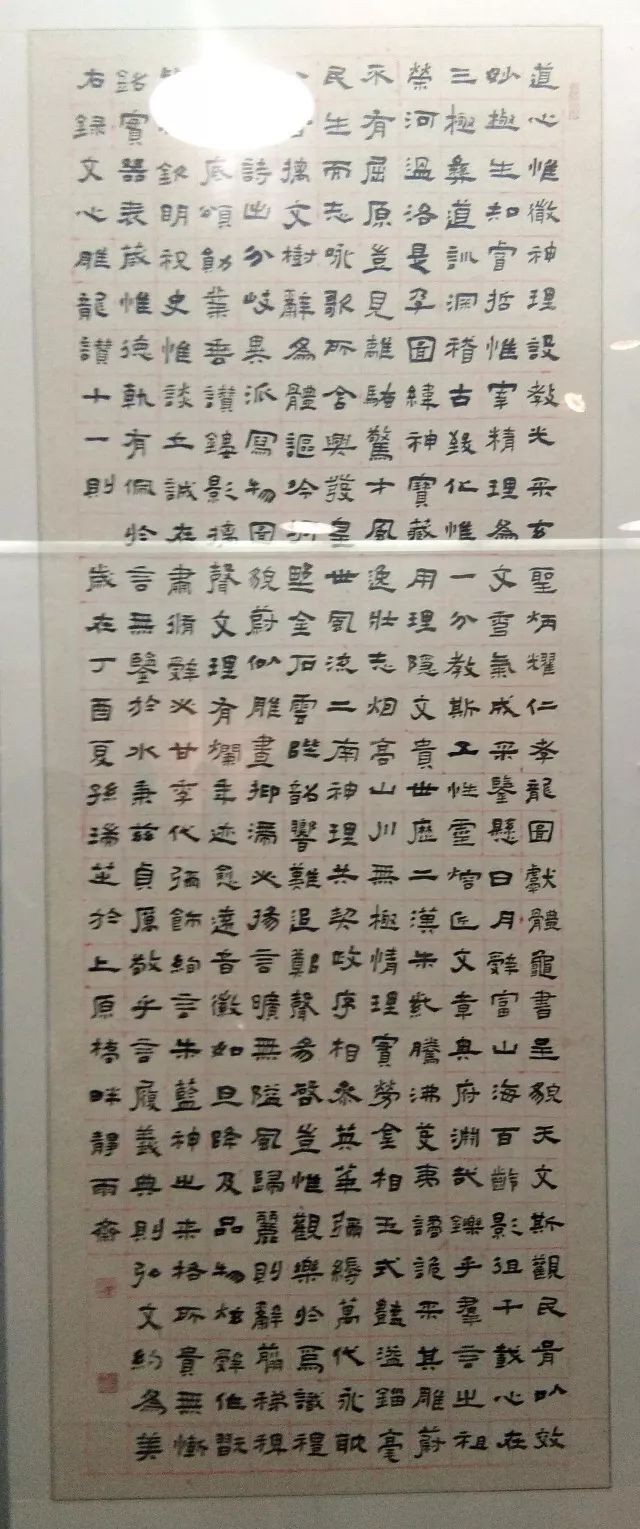 道心惟微神理設教光采玄聖炳耀仁孝龍圖獻體龜書呈貌天文斯觀民胥以效
妙極生知睿哲惟宰精理為文秀氣成采鑒懸日月辭富山海百齡影徂千載心在
三極彝道訓深稽古致化惟一分教斯五性靈熔匠文章奧府淵哉鑠乎羣言之祖
榮河溫洛是孕圖緯神寶藏用理隱文貴世歷二漢朱紫騰沸芟夷譎詭采其雕蔚
不有屈原豈見離騷驚才風逸壯志烟高山川無極情理實勞金相玉式豔溢錙毫
民生而志詠歌所含興發皇世風流二南神理共契政序相參英華彌縟萬代永耽
摛文樹辭為體謳吟坰野金石雲陛韶響難追鄭聲易啓豈惟觀樂於焉識禮
詩出分岐異派寫物圖貌蔚似雕畫抑滯必揚言曠無隘風歸麗則辭翦稊稗
底頌勳業垂讚鏤影摛聲文理有爛年迹愈遠音徽如旦降及品物炫辭作翫
欽明祝史惟談立誠在肅脩辭必甘季代彌飾絢言朱藍神之來格所貴無慚
銘實器表箴惟德軌有佩於言無鑒於水秉茲貞厲敬乎言履義典則弘文約為美
右録文心雕龍讚十一則 歲在丁酉夏孫瑞芝於上原橋畔靜雨齋